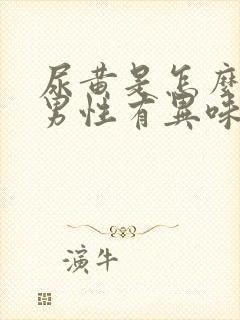 尿黄是怎麼
男性有異味
演牛